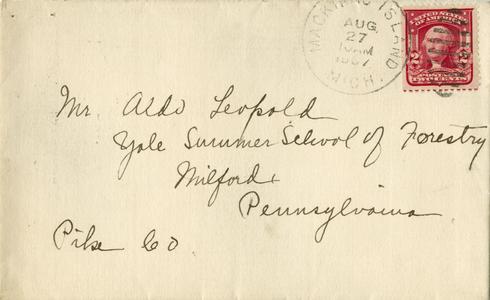 MACKINAC ISLAND
AUG
27
10 AM
1907
MICH.
UNITED STATES
OF AMERICA
2 2
TWO CENTS
Mr. Aldo Leopold
Yale Summer School of Forestry
Milford,
Pennsylvania
Pike Co